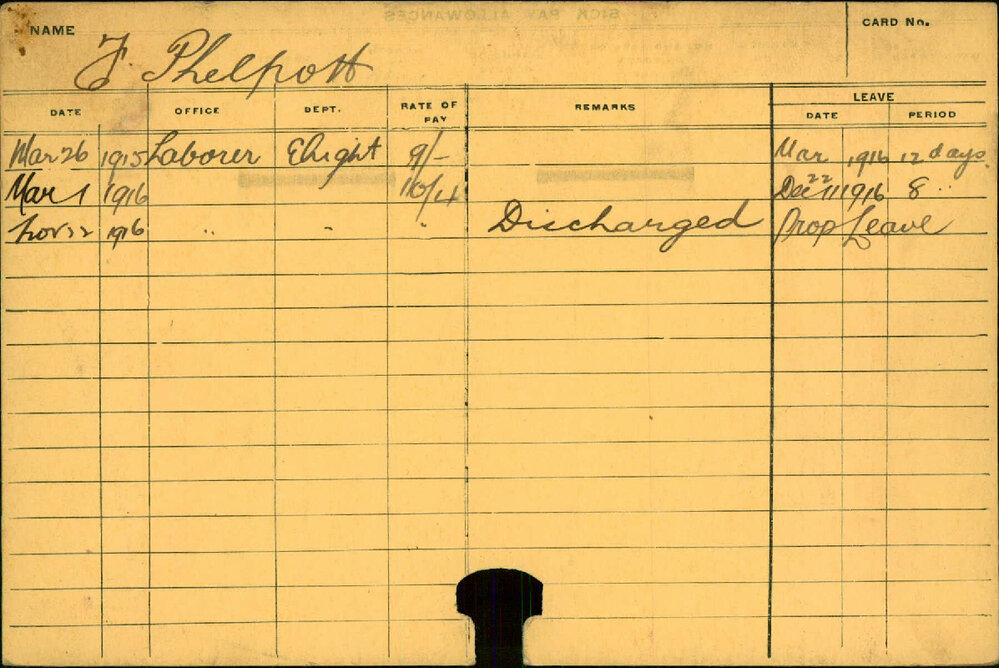 SICK PAY ALLOWANCES
NAME F. Phelpott CARD No.
LEAVE
DATE OFFICE DEPT. RATE OF PAY REMARKS DATE PERIOD
Mar 26 1915 Laborer ELight 9/- Mar 1916 12 days
Mar 1 1916 10/4 Dec 22 11 1916 8 "
Nov 22 1916 " " " Discharged Prop Leave